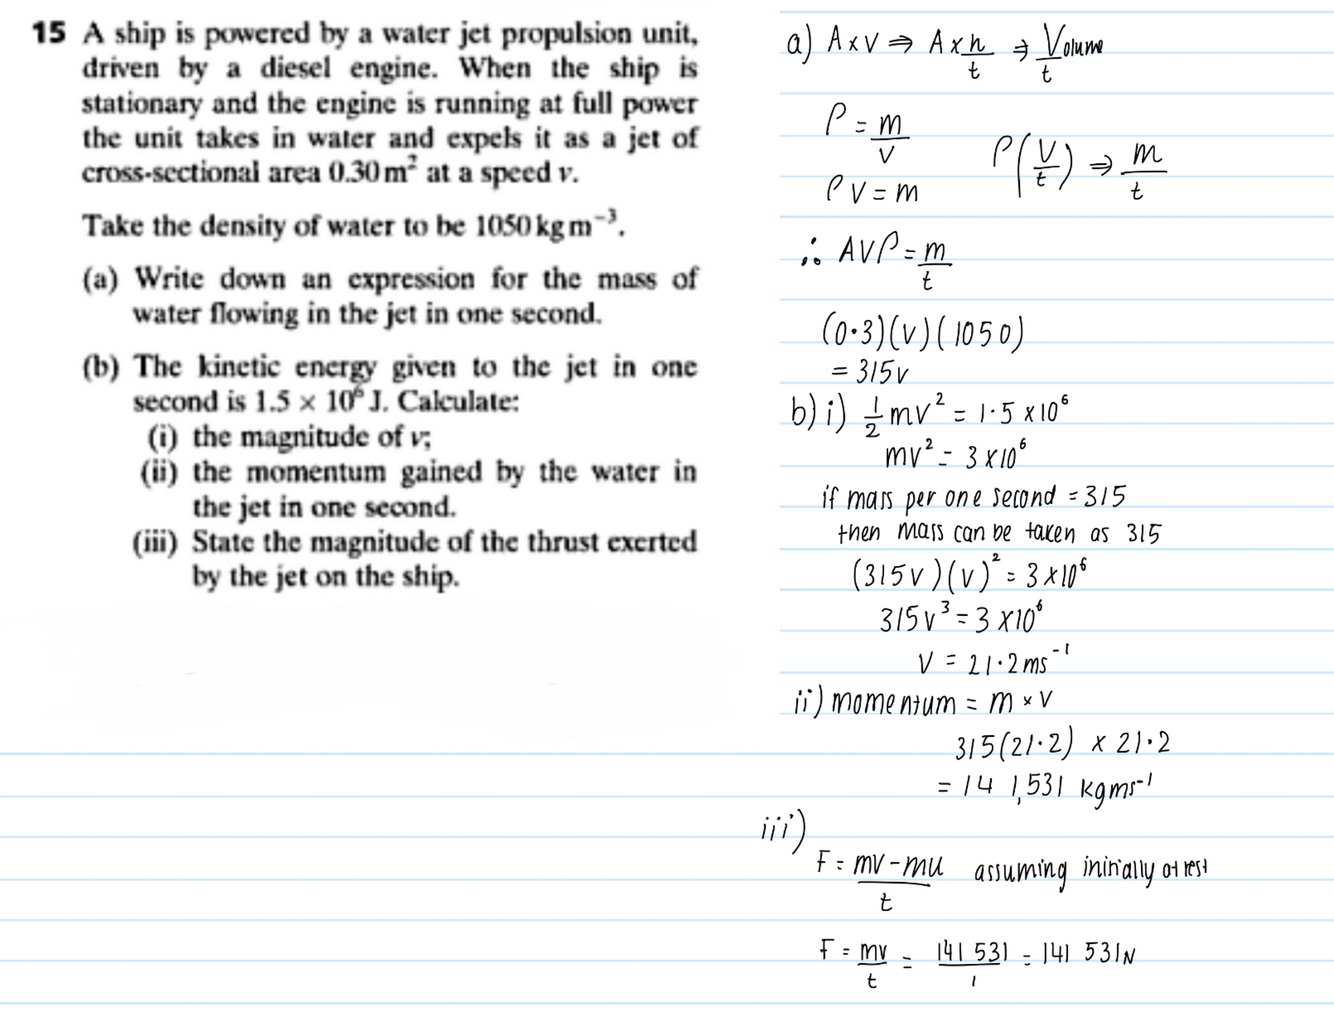 15 A ship is powered by a water jet propulsion unit,
driven by a diesel engine. When the ship is
stationary and the engine is running at full power
the unit takes in water and expels it as a jet of
cross-sectional area 0.30 m² at a speed v.
Take the density of water to be 1050 kg m⁻³.
(a) Write down an expression for the mass of
water flowing in the jet in one second.
(b) The kinetic energy given to the jet in one
second is 1.5 × 10⁶ J. Calculate:
(i) the magnitude of v;
(ii) the momentum gained by the water in
the jet in one second.
(iii) State the magnitude of the thrust exerted
by the jet on the ship.
a) A×V ⇒ A×h/t ⇒ Volume/t
ρ = m/V
ρ(V/t) ⇒ m/t
ρV = m
∴ AVρ = m/t
(0·3)(v)(1050)
= 315v
b) i) 1/2 mv² = 1·5 ×10⁶
mv² = 3×10⁶
if mass per one second = 315
then mass can be taken as 315
(315v)(v)² = 3×10⁶
315v³ = 3×10⁶
V = 21·2ms⁻¹
ii) momentum = m × v
315(21·2) × 21·2
= 141,531 kgms⁻¹
iii)
F = mv-mu/t assuming initially at rest
F = mv/t = 141 531/1 = 141 531N